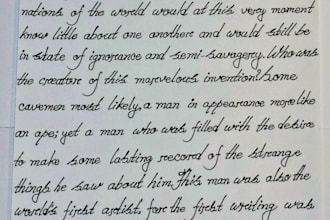 nations of the world would at this very moment
know little about one another and would still be
in state of ignorance and semi-savagery. Who was
the creator of this marvelous invention? Some
cavemen most likely, a man in appearance more like
an ape; yet a man who was filled with the desire
to make some lasting record of the strange
things he saw about him. This man was also the
world's first artist, for the first writing was